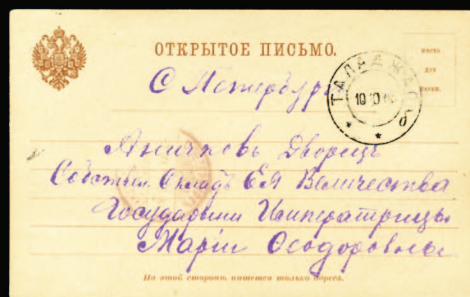 ОТКРЫТОЕ ПИСЬМО.
МѢСТО
ДЛЯ
МАРКИ.
С Петербургъ
10 10
Аничковъ Дворецъ
Собствен. Складъ ЕЯ Величества
Государыни Императрицы
Маріи Ѳеодоровны
На этой сторонѣ пишется только адресъ.